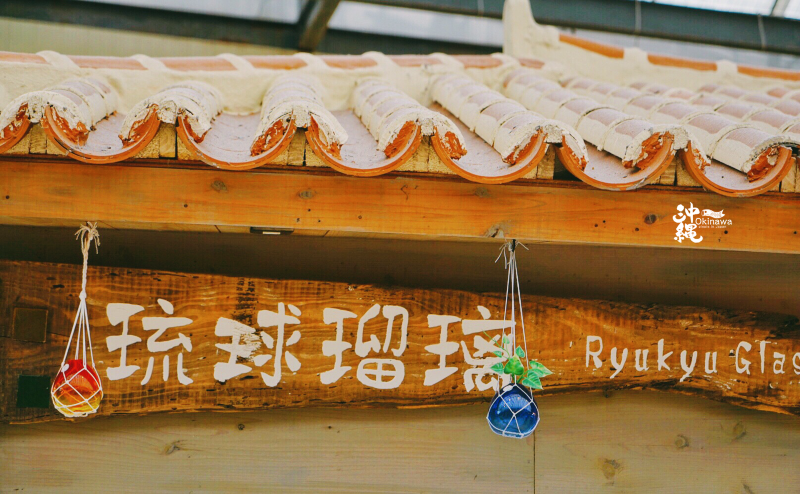 沖縄
Okinawa
琉球瑠璃
Ryukyu Glas